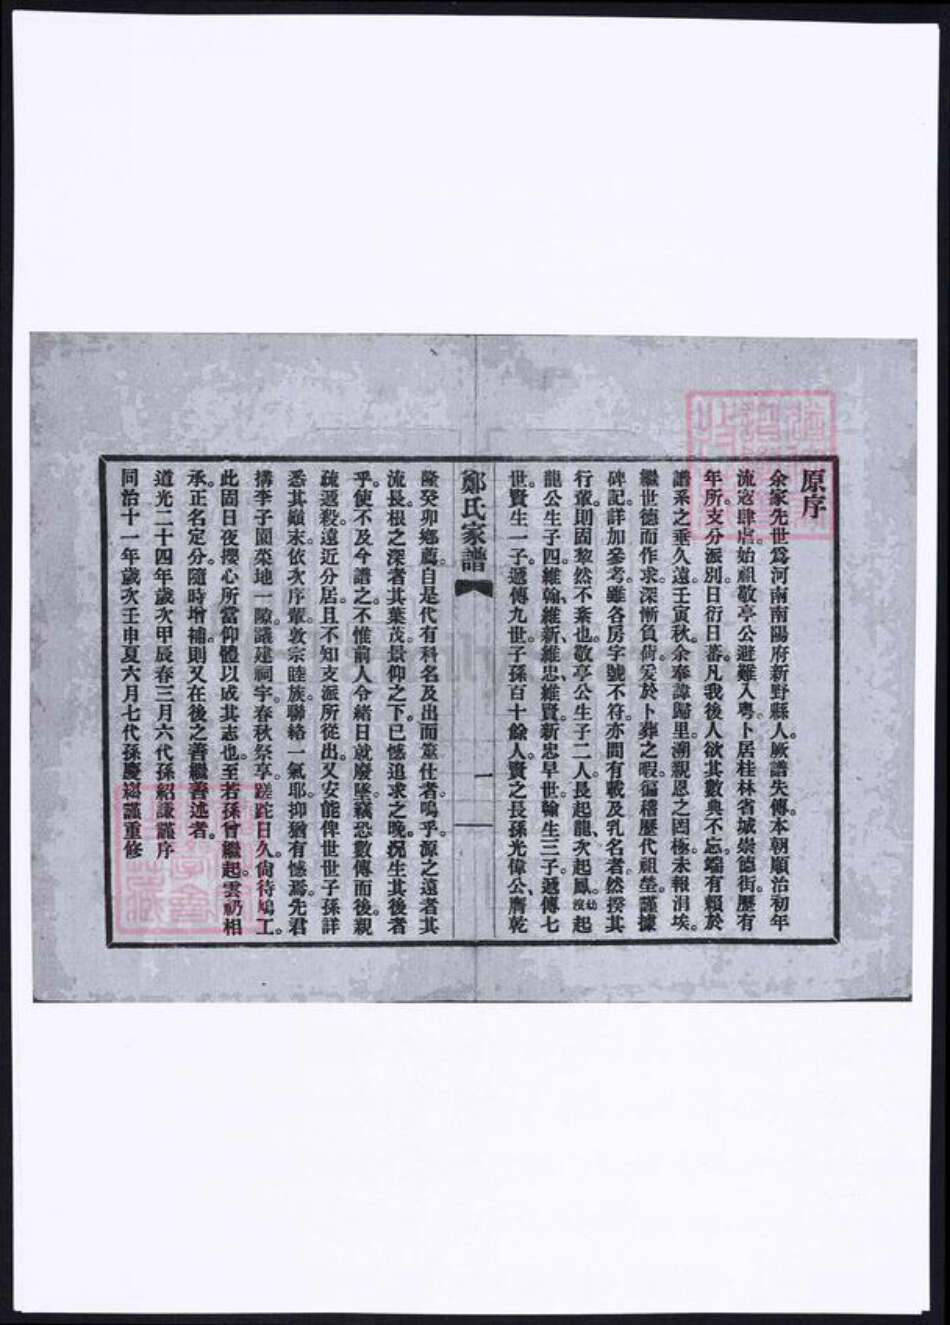 原序
余家先世爲河南南陽府新野縣人。厥譜失傳。本朝順治初年
流寇肆虐。始祖敬亭公避難入粵。卜居桂林省城崇德街。歷有
年所。支分派別。日衍日蕃。凡我後人欲其數典不忘。端有賴於
譜系之垂久遠。壬寅秋。余奉諱歸里。溯親恩之罔極。未報涓埃。
繼世德而作求。深慚負荷。爰於卜葬之暇。徧稽歷代祖塋。謹據
碑記。詳加參考。雖各房字號不符。亦間有載及乳名者。然揆其
行輩。則固黎然不紊也。敬亭公生子二人。長起龍、次起鳳。幼歿起
龍公生子四。維翰、維新、維忠、維賢。新忠早世。翰生三子。遞傳七
世。賢生一子。遞傳九世。子孫百十餘人。賢之長孫光偉公、膺乾
鄭氏家譜
一
隆癸卯鄉薦。自是代有科名及出而筮仕者。嗚乎。源之遠者其
流長。根之深者其葉茂。景仰之下。已憾追求之晚。況生其後者
乎。使不及今譜之。不惟前人令緒日就廢墜。竊恐數傳而後。親
疏遞殺。遠近分居。且不知支派所從出。又安能俾世世子孫詳
悉其顚末。依次序輩。敦宗睦族。聯絡一氣耶。抑猶有憾焉。先君
購李子園菜地一隙。議建祠宇。春秋祭享。蹉跎日久。尙待鳩工。
此固日夜攖心所當仰體以成其志也。至若孫曾繼起。雲礽相
承。正名定分。隨時增補。則又在後之善繼善述者。
道光二十四年歲次甲辰春三月六代孫紹謙謹序
同治十一年歲次壬申夏六月七代孫慶謹重修